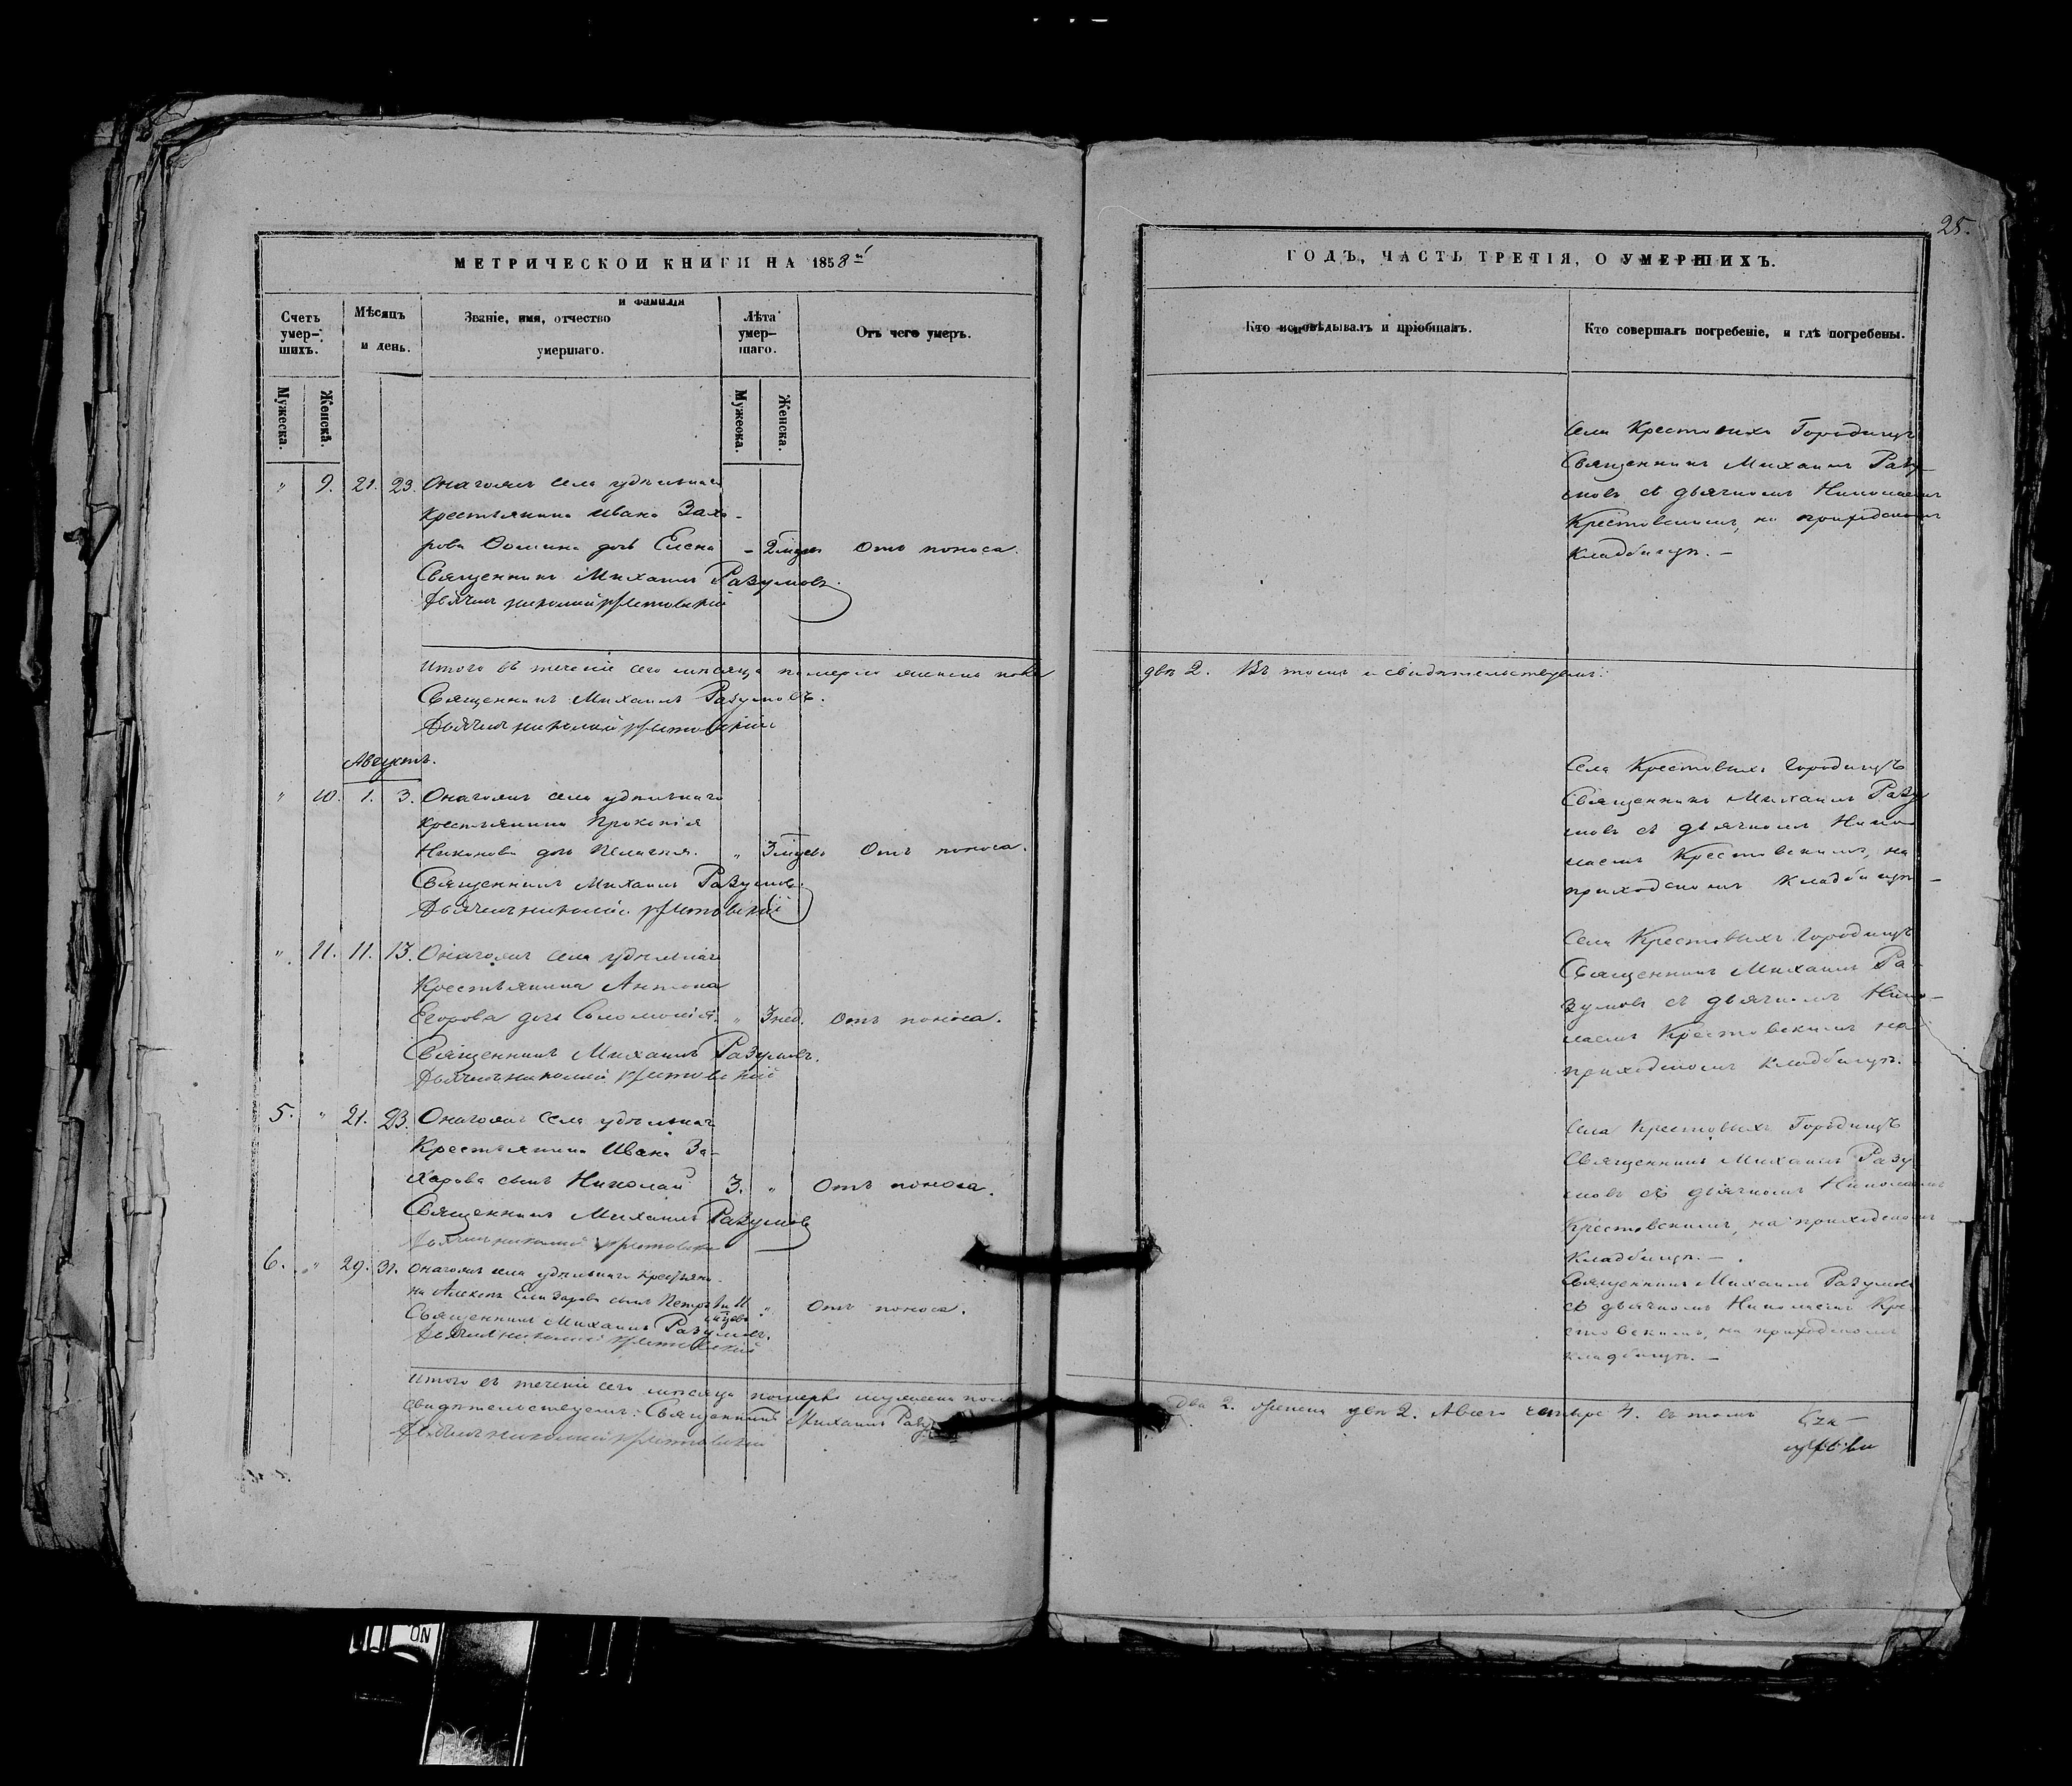 МЕТРИЧЕСКОЙ КНИГИ НА 1858й
Счетъ умер-шихъ.
Мѣсяцъ и день.
Званіе, имя, отчество и фамилія умершаго.
Лѣта умер-шаго.
Отъ чего умеръ.
Мужеска.
Женска.
Мужеска.
Женска.
„ 9. 21. 23. Онагожъ села удѣльнаго
крестьянина Ивана Заха-
рова Ѳомина дочь Елена - 2 мцевъ Отъ поноса.
Священникъ Михаилъ Разумовъ.
Дьячекъ Николай Крестовскій
Итого въ теченіе сего мѣсяца померло женска пола
Священникъ Михаилъ Разумовъ.
Дьячекъ Николай Крестовскій
Августъ.
„ 10. 1. 3. Онагожъ села удѣльнаго
крестьянина Прокопія
Никонова дочь Пелагея. „ 3 мцевъ Отъ поноса.
Священникъ Михаилъ Разумовъ.
Дьячекъ Николай Крестовскій
„ 11. 11. 13. Онагожъ села удѣльнаго
Крестьянина Антона
Егорова дочь Соломонія. „ 3 нед. Отъ поноса.
Священникъ Михаилъ Разумовъ.
Дьячекъ Николай Крестовскій
5. „ 21. 23. Онагожъ села удѣльнаго
Крестьянина Ивана За-
харова сынъ Николай 3. „ Отъ поноса.
Священникъ Михаилъ Разумовъ
Дьячекъ Николай Крестовскій
6. „ 29. 31. Онагожъ села удѣльнаго Крестьяни-
на Алексѣя Елизарова сынъ Петръ 1 и 11 мцевъ „ Отъ поноса.
Священникъ Михаилъ Разумовъ.
Дьячекъ Николай Крестовскій
Итого въ теченіе сего мѣсяца померло мужеска пола
свидѣтельствуемъ: Священникъ Михаилъ Разумовъ
Дьячекъ Николай Крестовскій
25.
ГОДЪ, ЧАСТЬ ТРЕТІЯ, О УМЕРШИХЪ.
Кто исповѣдывалъ и пріобщалъ.
Кто совершалъ погребеніе, и гдѣ погребены.
Села Крестовыхъ Городищъ
Священникъ Михаилъ Разу-
мовъ съ дьячкомъ Николаемъ
Крестовскимъ, на приходскомъ
кладбищѣ.-
двѣ 2. Въ томъ и свидѣтельствуемъ:
Села Крестовыхъ Городищъ
Священникъ Михаилъ Разу
мовъ съ дьячкомъ Нико-
лаемъ Крестовскимъ, на
приходскомъ кладбищѣ-
Села Крестовыхъ Городищъ
Священникъ Михаилъ Ра-
зумовъ съ дьячкомъ Нико-
лаемъ Крестовскимъ на
приходскомъ кладбищѣ.
Села Крестовыхъ Городищъ
Священникъ Михаилъ Разу
мовъ съ дьячкомъ Николаемъ
Крестовскимъ, на приходскомъ
кладбищѣ.-
Священникъ Михаилъ Разумовъ
съ дьячкомъ Николаемъ Кре-
стовскимъ, на приходскомъ
кладбищѣ.-
два 2. женска двѣ 2. А всего четыре 4. въ томъ